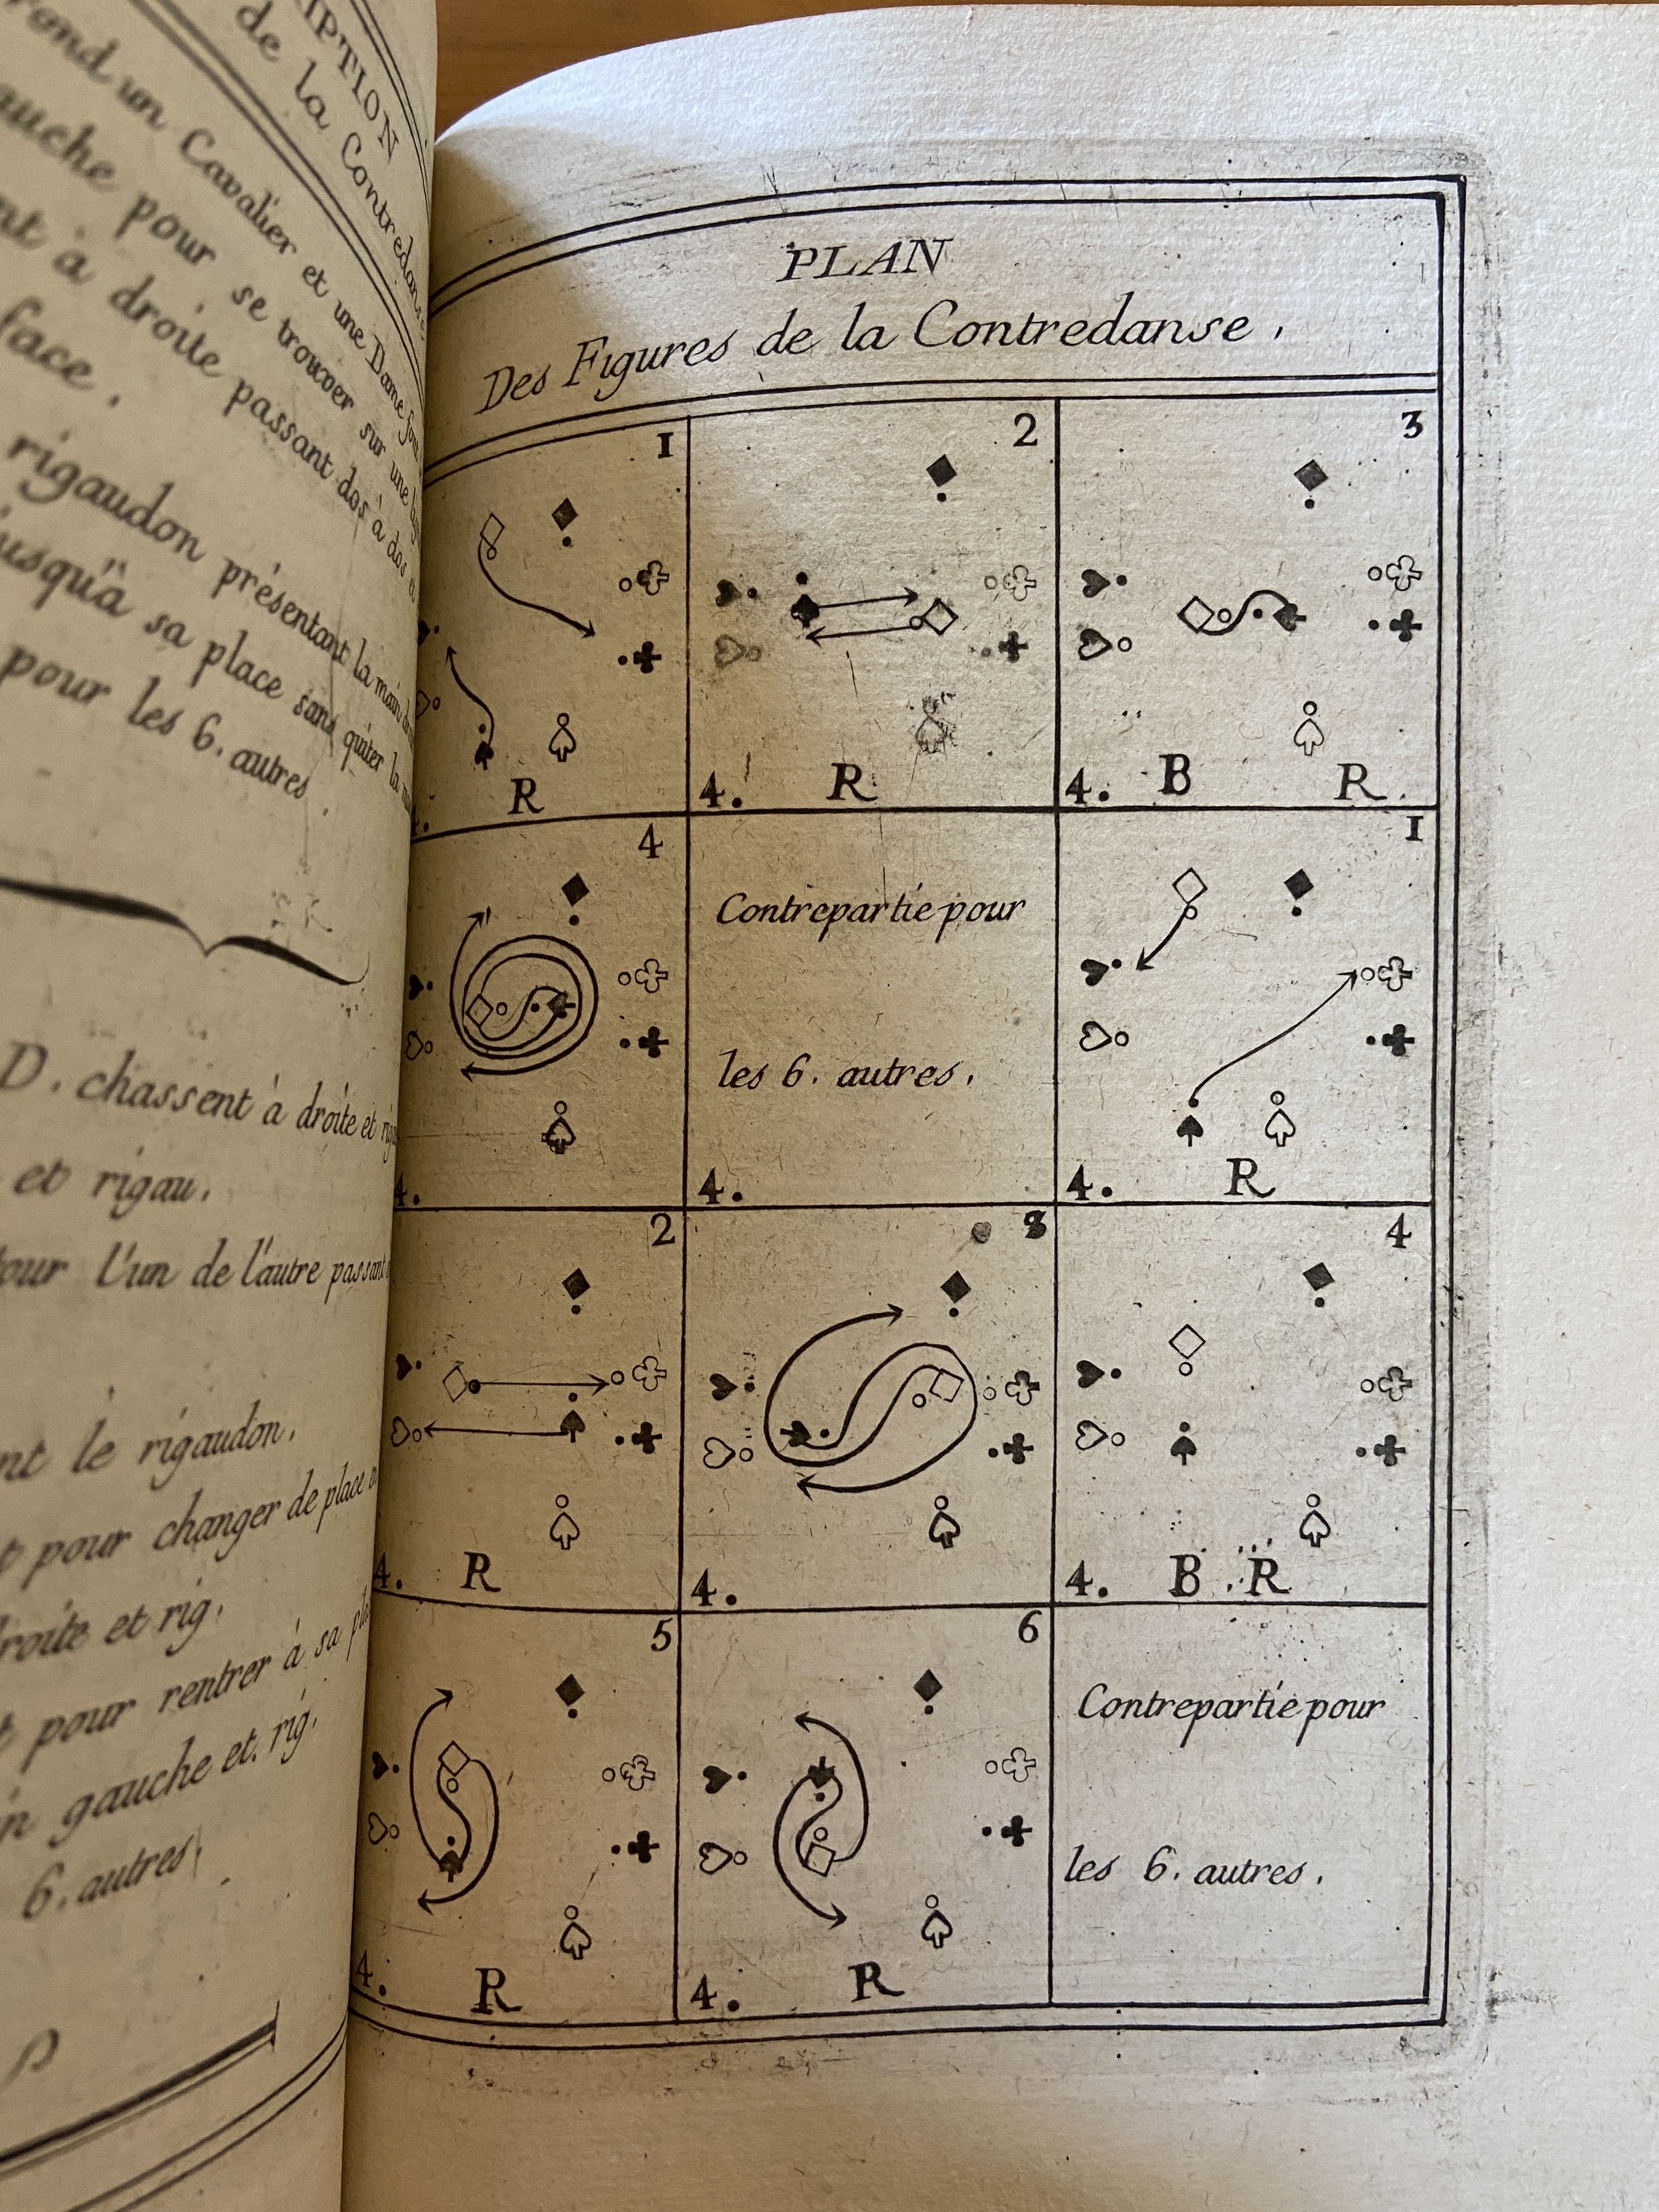 IPTION
de la Contredanse
rond un Cavalier et une Dame
auche pour se trouver sur une
nt à droite passant dos à dos
face.
rigaudon présentant la main
usqu'à sa place sans quiter la
pour les 6. autres.
D. chassent à droite et
et rigau.
our l'un de l'autre passant
nt le rigaudon.
pour changer de place
roite et rig.
pour rentrer à sa
n gauche et. rig.
6. autres.
PLAN
Des Figures de la Contredanse.
1
R
2
4. R
3
4. B R.
4
4.
Contrepartie pour
les 6. autres.
4.
1
4. R
2
4. R
3
4.
4
4. B R
5
4. R
6
4. R
Contrepartie pour
les 6. autres.